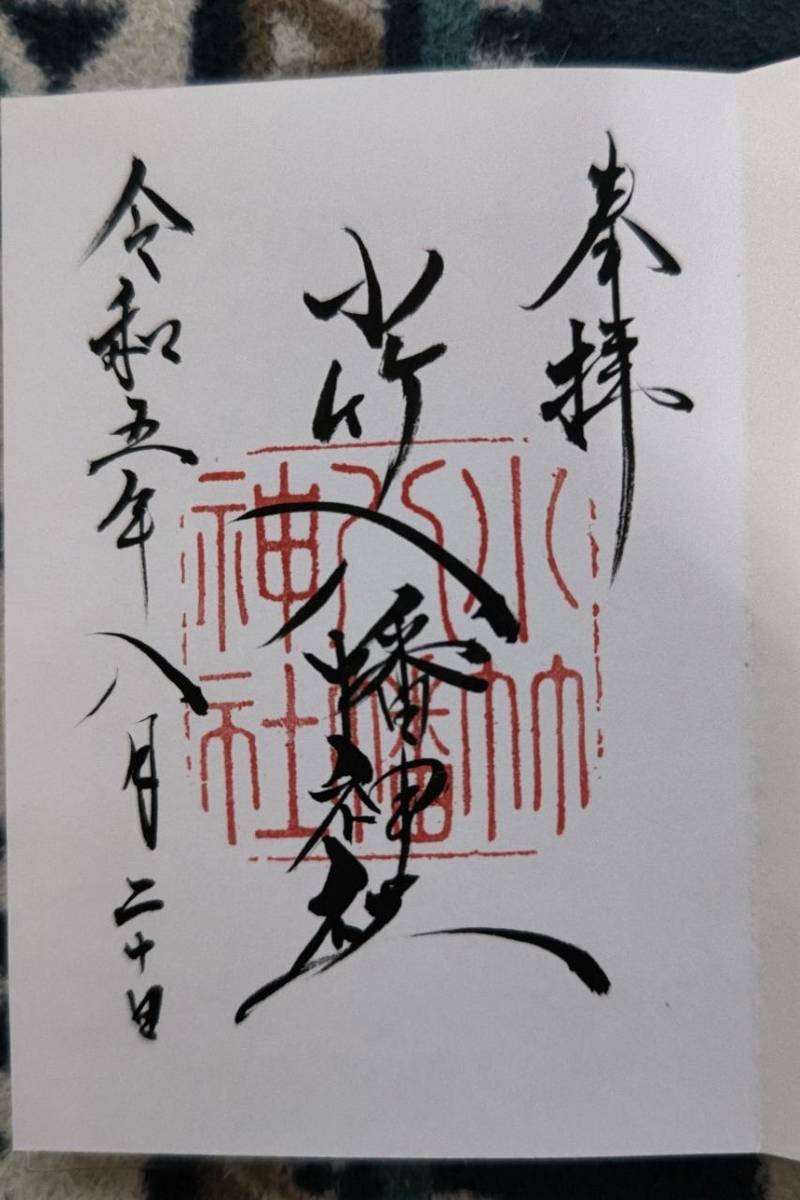 奉拝
小竹八幡神社
小竹
八幡
神社
令和五年八月二十日